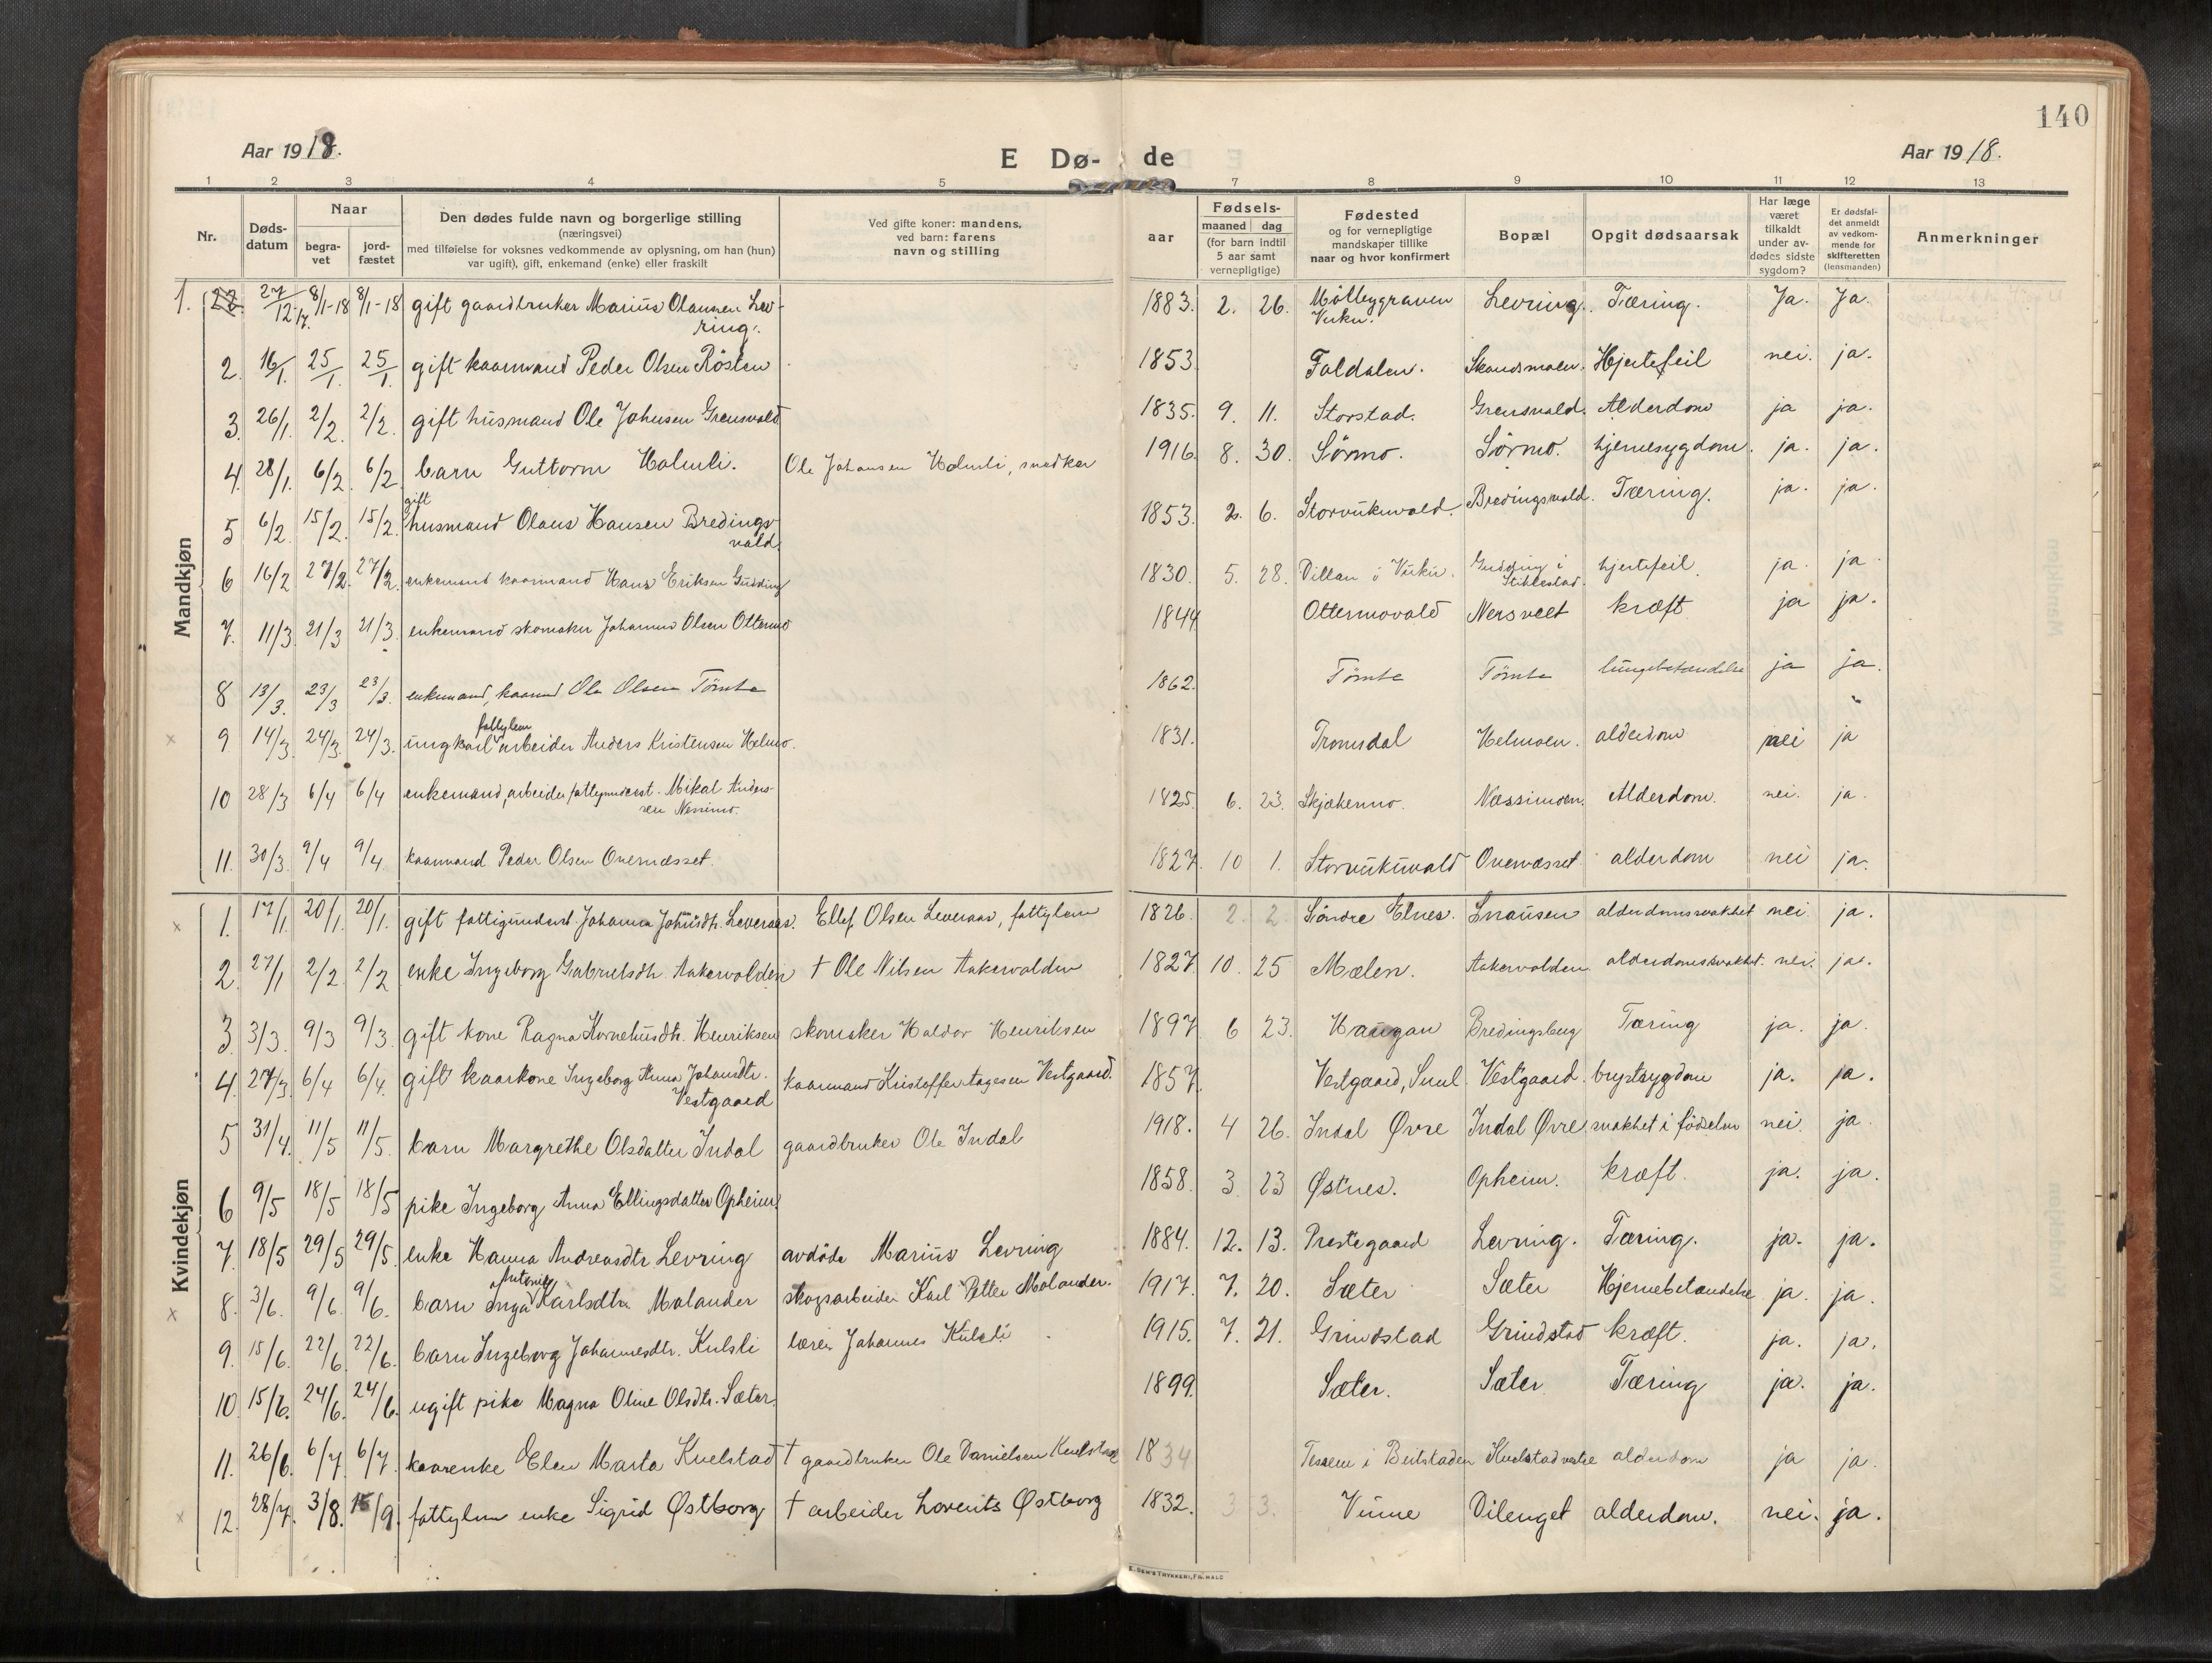 140
Aar 1918.
E Dø- de
Aar 1918.
1 2 3 4 5 7 8 9 10 11 12 13
Nr.
Døds-
datum
Naar
begra-
vet
jord-
fæstet
Den dødes fulde navn og borgerlige stilling
(næringsvei)
med tilføielse for voksnes vedkommende av oplysning, om han (hun)
var ugift), gift, enkemand (enke) eller fraskilt
Ved gifte koner: mandens,
ved barn: farens
navn og stilling
aar
Fødsels-
maaned dag
(for barn indtil
5 aar samt
vernepligtige)
Fødested
og for vernepligtige
mandskaper tillike
naar og hvor konfirmert
Bopæl
Opgit dødsaarsak
Har læge
været
tilkaldt
under av-
dødes sidste
sygdom?
Er dødsfal-
det anmeldt
av vedkom-
mende for
skifteretten
(lensmanden)
Anmerkninger
Mandkjøn
1. 27/12-17. 8/1-18 8/1-18 gift gaardbruker Marius Olausen Lev-
ring. 1883. 2. 26. Møllegraven
Vuku. Levring. Tæring. Ja. Ja.
2. 16/1. 25/1. 25/1. gift kaarmand Peder Olsen Røsten 1853 Faldalen. Skandsmoen. Hjertefeil nei. ja.
3. 26/1. 2/2. 2/2. gift husmand Ole Johnsen Grensvald 1835. 9. 11. Storstad. Grensvald. Alderdom ja ja.
4. 28/1. 6/2. 6/2 barn Guttorm Holmli. Ole Johansen Holmli, snedker 1916. 8. 30. Sørmo. Sørmo. hjernesygdom. ja. ja.
5 6/2. 15/2. 15/2. gift husmand Olaus Hansen Bredings-
vald. 1853. 2. 6. Storvukuvald. Bredingsvald. Tæring. ja. ja.
6 16/2 27/2. 27/2. enkemand kaarmand Hans Eriksen Gudding 1830. 5. 28. Villan i Vuku. Gudding i
Stiklestad. hjertefeil. ja. ja
7. 11/3. 21/3 21/3. enkemand skomaker Johannes Olsen Ottermo 1844 Ottermovald Nersveet kræft ja ja.
8 13/3. 23/3 23/3. enkemand, kaarmd Ole Olsen Tømte 1862. Tømte Tømte lungebetændelse ja ja.
x 9 14/3 24/3. 24/3. ungkarl fattiglem arbeider Anders Kristensen Helmo. 1831. Tromsdal Helmoen. alderdom nei ja
10 28/3 6/4 6/4 enkemand, arbeider fattigunderst. Mikal Anders-
sen Nessimo. 1825. 6. 23. Skjækermo. Næssimoen. Alderdom. nei. ja.
11. 30/3. 9/4 9/4. kaarmand Peder Olsen Overnæsset. 1827. 10 1. Storvukuvald Overnæsset alderdom nei ja.
Kvindekjøn
x 1. 17/1. 20/1. 20/1. gift fattigunderst. Johanna Johnsdtr. Leveraas. Ellef Olsen Leveraas, fattiglem 1826. 2. 2 Søndre Elnes. Snausen alderdomssvakhet nei ja.
2. 27/1 2/2. 2/2 enke Ingeborg Gabrielsdtr. Aakervolden † Ole Nilsen Aakervolden 1827. 10. 25 Mælen. Aakervolden. alderdomssvakhet. nei. ja.
3. 3/3. 9/3 9/3. gift kone Ragna Korneliusdtr. Henriksen skomaker Haldor Henriksen 1897 6 23. Haugan Bredingsberg Tæring ja. ja.
4. 27/3. 6/4 6/4. gift kaarkone Ingeborg Anna Johansdtr.
Vestgaard kaarmand Kristoffer Aagesen Vestgaard. 1857. Vestgaard, Suul. Vestgaard. brystsygdom ja. ja.
5 31/4. 11/5 11/5. barn Margrethe Olsdatter Indal gaardbruker Ole Indal 1918. 4 26. Indal Øvre Indal Øvre svakhet i fødselen nei ja.
6 9/5 18/5 18/5 pike Ingeborg Anna Ellingsdatter Opheim. 1858. 3. 23 Østnes. Opheim. kræft. ja. ja.
7. 18/5 29/5 29/5. enke Hanna Andreasdtr Levring avdøde Marius Levring 1884. 12. 13. Prestegaard Levring. Tæring. ja. ja.
x 8. 3/6. 9/6. 9/6. barn Inga Antonie Karlsdtr. Molander skogsarbeider Karl Petter Molander. 1917. 7. 20. Sæter Sæter Hjernebetændelse ja. ja.
9. 15/6. 22/6. 22/6. barn Ingeborg Johannesdtr. Kulsli lærer Johannes Kulsli 1915. 7. 21. Grindstad Grindstad kræft. ja. ja.
10. 15/6. 24/6. 24/6. ugift pike Magna Oline Olsdtr. Sæter. 1899. Sæter. Sæter Tæring ja. ja.
11. 26/6. 6/7. 6/7. kaarenke Elen Marta Kvelstad † gaardbruker Ole Danielsen Kvelstad 1834 Tessem i Beitstaden Kvelstad vestre alderdom ja ja.
x 12. 28/7. 3/8. 15/9. fattiglem enke Sigrid Østborg † arbeider Lorents Østborg 1832. 3 3. Vinne Vilenget alderdom. nei. ja.